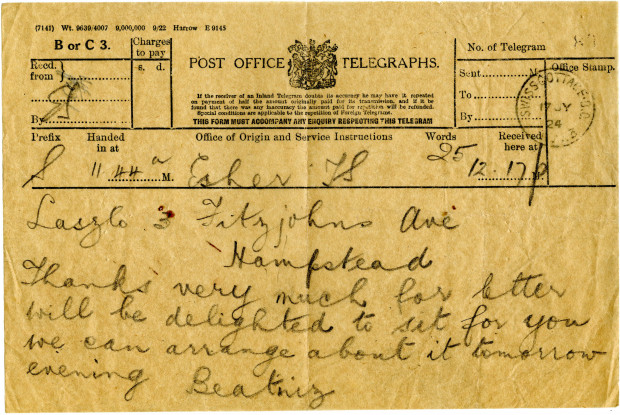 (7141) Wt. 9639/4007 9,000,000 9/22 Harrow E 9145
B or C 3.
Charges to pay
s. d.
POST OFFICE TELEGRAPHS.
No. of Telegram
Recd. from
By
If the receiver of an Inland Telegram doubts its accuracy he may have it repeated
on payment of half the amount originally paid for its transmission, and if it be
found that there was any inaccuracy the amount paid for repetition will be refunded.
Special conditions are applicable to the repetition of Foreign Telegrams.
THIS FORM MUST ACCOMPANY ANY ENQUIRY RESPECTING THIS TELEGRAM
Sent
To
By
Office Stamp.
SWISS COTTAGE B.O.
17 JY
24
Prefix Handed in at Office of Origin and Service Instructions Words Received here at
S 11.44 a M. Esher TS 25 12.17 p M.
Laszlo 3 Fitzjohns Ave
Hampstead
Thanks very much for letter
will be delighted to sit for you
we can arrange about it tomorrow
evening Beatriz